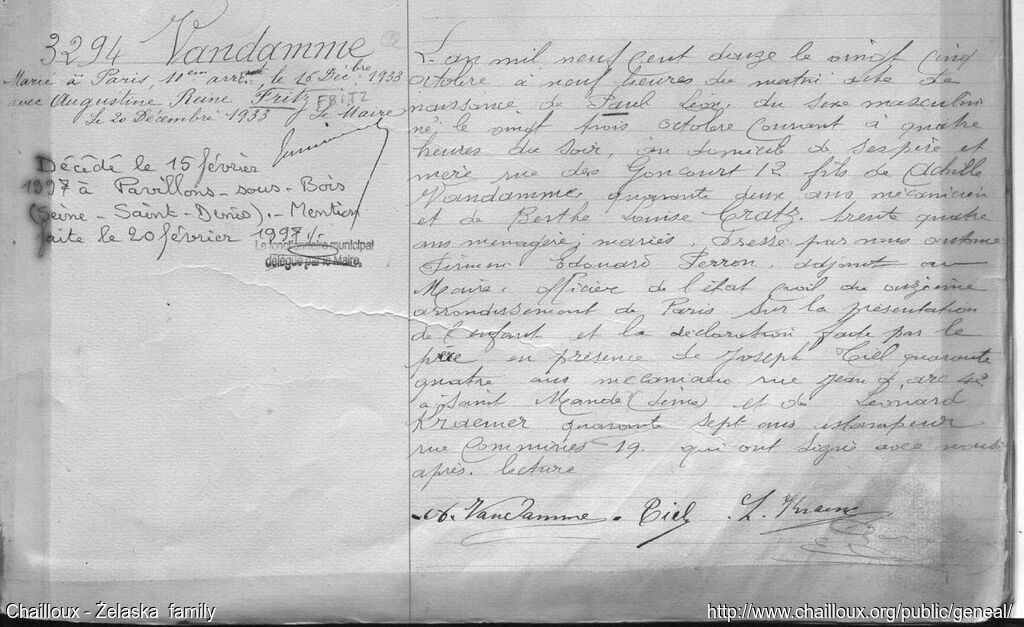 3294 Vandamme
Marié à Paris, 10ème arrt le 16 Décbre 1933
avec Augustine Reine Fritz FRITZ
Le 20 Décembre 1933 Le Maire
Décédé le 15 février
1997 à Pavillons-sous-Bois
(Seine-Saint-Denis).- Mention
faite le 20 février 1997./-
Le fonctionnaire municipal
délégué par le Maire,
L'an mil neuf cent douze le vingt cinq
octobre à neuf heures du matin acte de
naissance de Paul Léon, du sexe masculin
né le vingt trois octobre courant à quatre
heures du soir, au domicile de ses père et
mère rue des Goncourt 12 fils de Achille
Vandamme, quarante deux ans mécanicien
et de Berthe Louise Tratz, trente quatre
ans ménagère; mariés. Dressé par nous antoine
Firmin Edouard Perron, adjoint au
Maire, officier de l'état civil du onzième
arrondissement de Paris sur la présentation
de l'enfant et la déclaration faite par le
père en présence de Joseph Ciel quarante
quatre ans mécanicien rue Jean d'arc 42
à Saint Mandé (Seine) et de Léonard
Kraemer quarante sept ans estampeur
rue Commines 19. qui ont signé avec nous
après lecture
Vandamme Ciel L. Kraem
Chailloux - Żelaska family
http://www.chailloux.org/public/geneal/